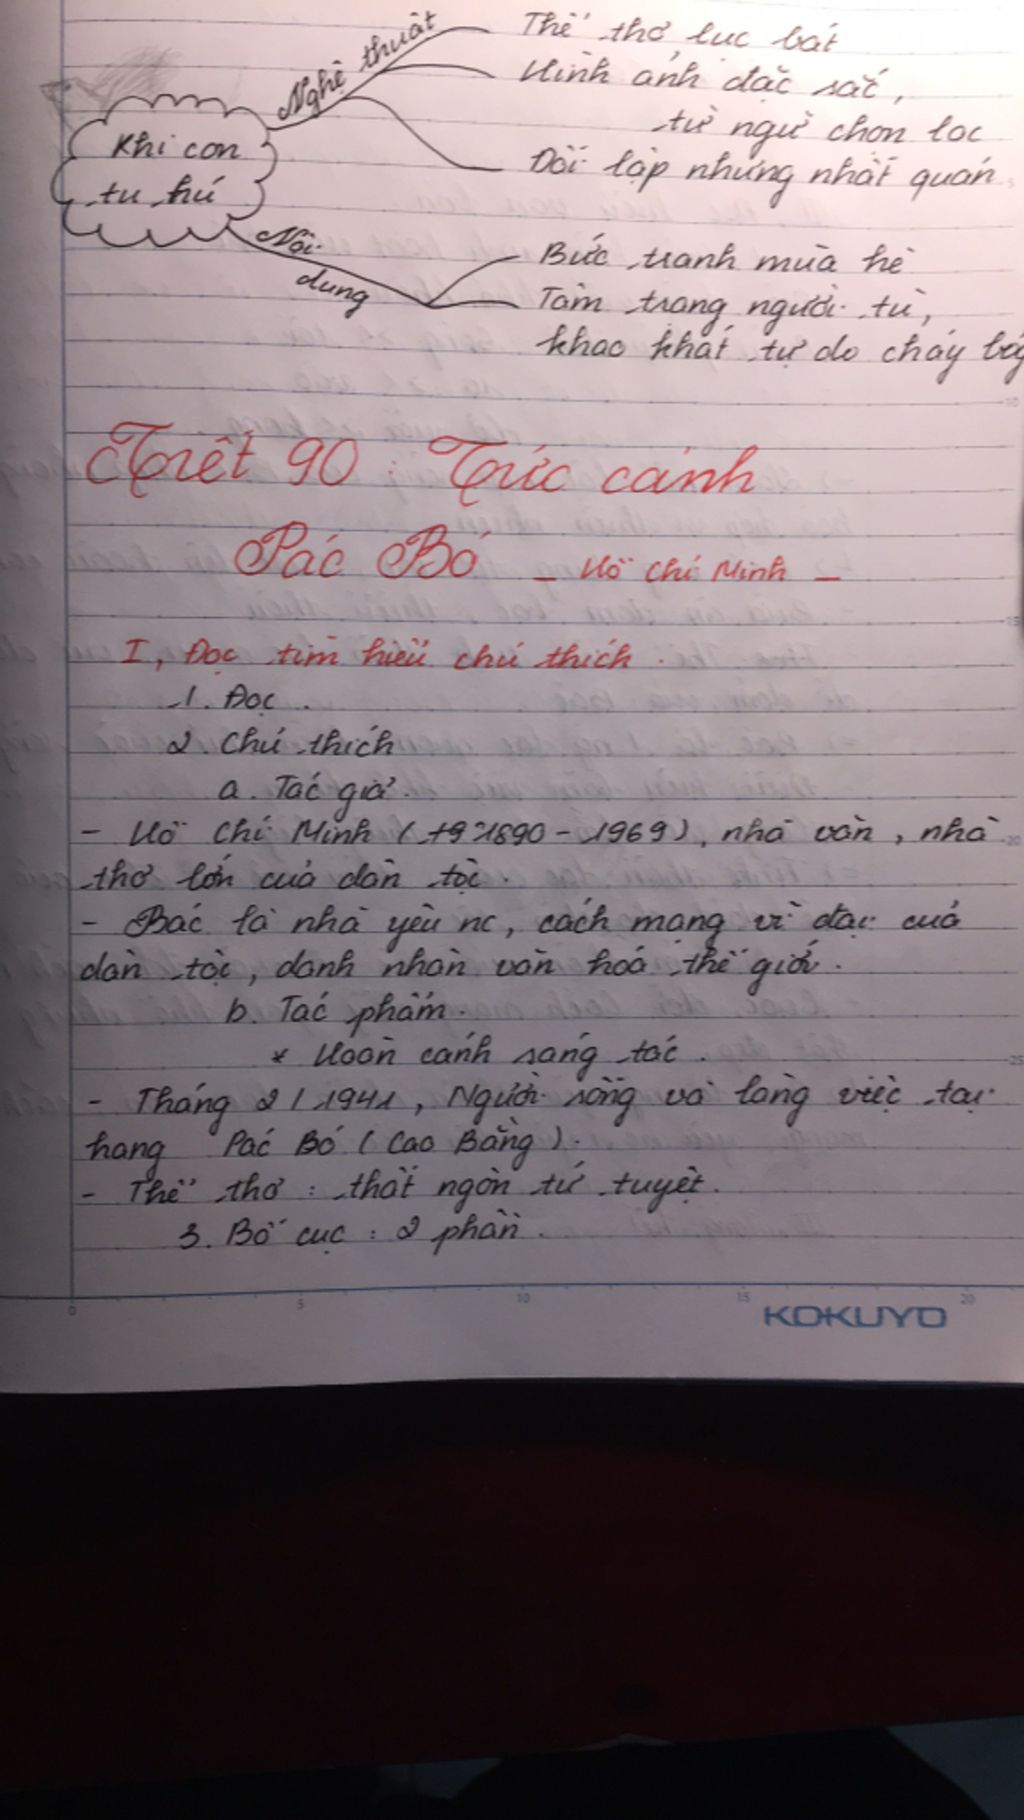 Nghệ thuật
Thể thơ lục bát
Hình ảnh đặc sắc,
từ ngữ chọn lọc
Đối lập nhưng nhất quán
Khi con
tu hú
Nội
dung
Bức tranh mùa hè
Tâm trạng người tù,
khao khát tự do cháy
Tiết 90 : Tức cảnh
Pác Bó - Hồ Chí Minh -
I, Đọc tìm hiểu chú thích.
1. Đọc.
2. Chú thích
a. Tác giả.
- Hồ Chí Minh (1890 - 1969), nhà văn, nhà
thơ lớn của dân tộc.
- Bác là nhà yêu nc, cách mạng vĩ đại của
dân tộc, danh nhân văn hoá thế giới.
b. Tác phẩm.
* Hoàn cảnh sáng tác.
- Tháng 2/1941, Người sống và làng việc tại
hang Pác Bó (Cao Bằng).
- Thể thơ : thất ngôn tứ tuyệt.
3. Bố cục : 2 phần.
0 5 10 15 20
KOKUYO